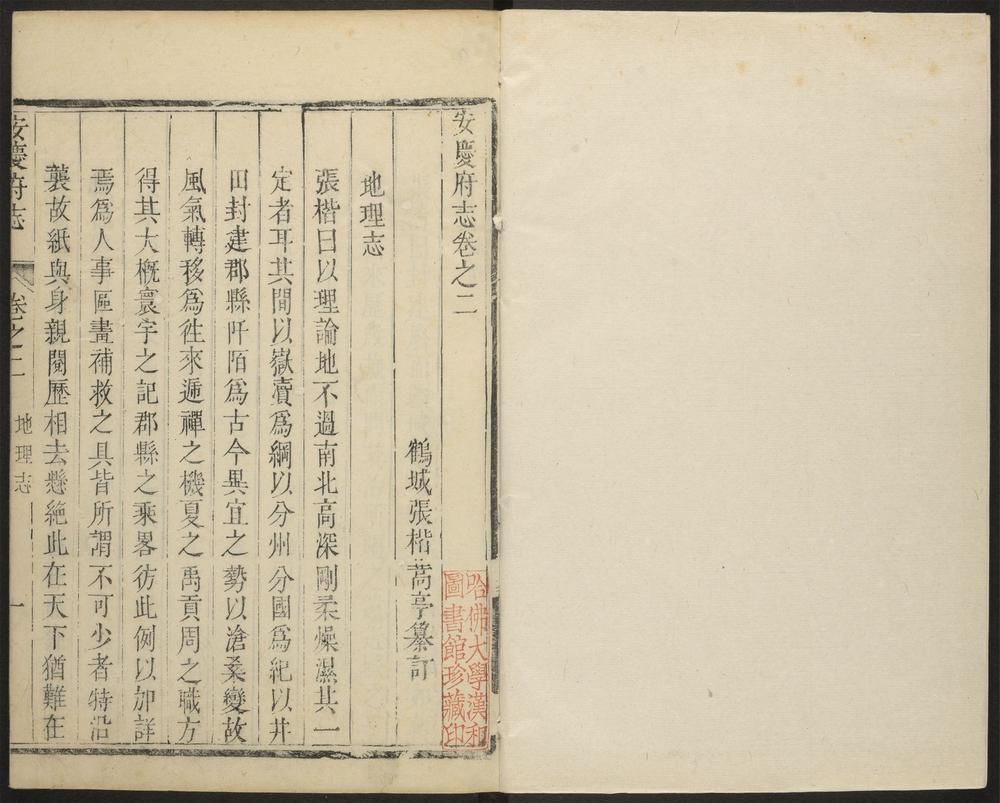 安慶府志卷之二
鶴城張楷蒿亭纂訂
地理志
張楷曰以理論地不過南北高深剛柔燥濕其一
定者耳其間以嶽瀆爲綱以分州分國爲紀以井
田封建郡縣阡陌爲古今異宜之勢以滄桑變故
風氣轉移爲徃來遞禪之機夏之禹貢周之職方
得其大槪寰宇之記郡縣之乘畧彷此例以加詳
焉爲人事區畫補救之具皆所謂不可少者特沿
襲故紙與身親閱歷相去懸絶此在天下猶難在
安慶府志
卷之二
地理志
一
哈佛大學漢和
圖書館珍藏印